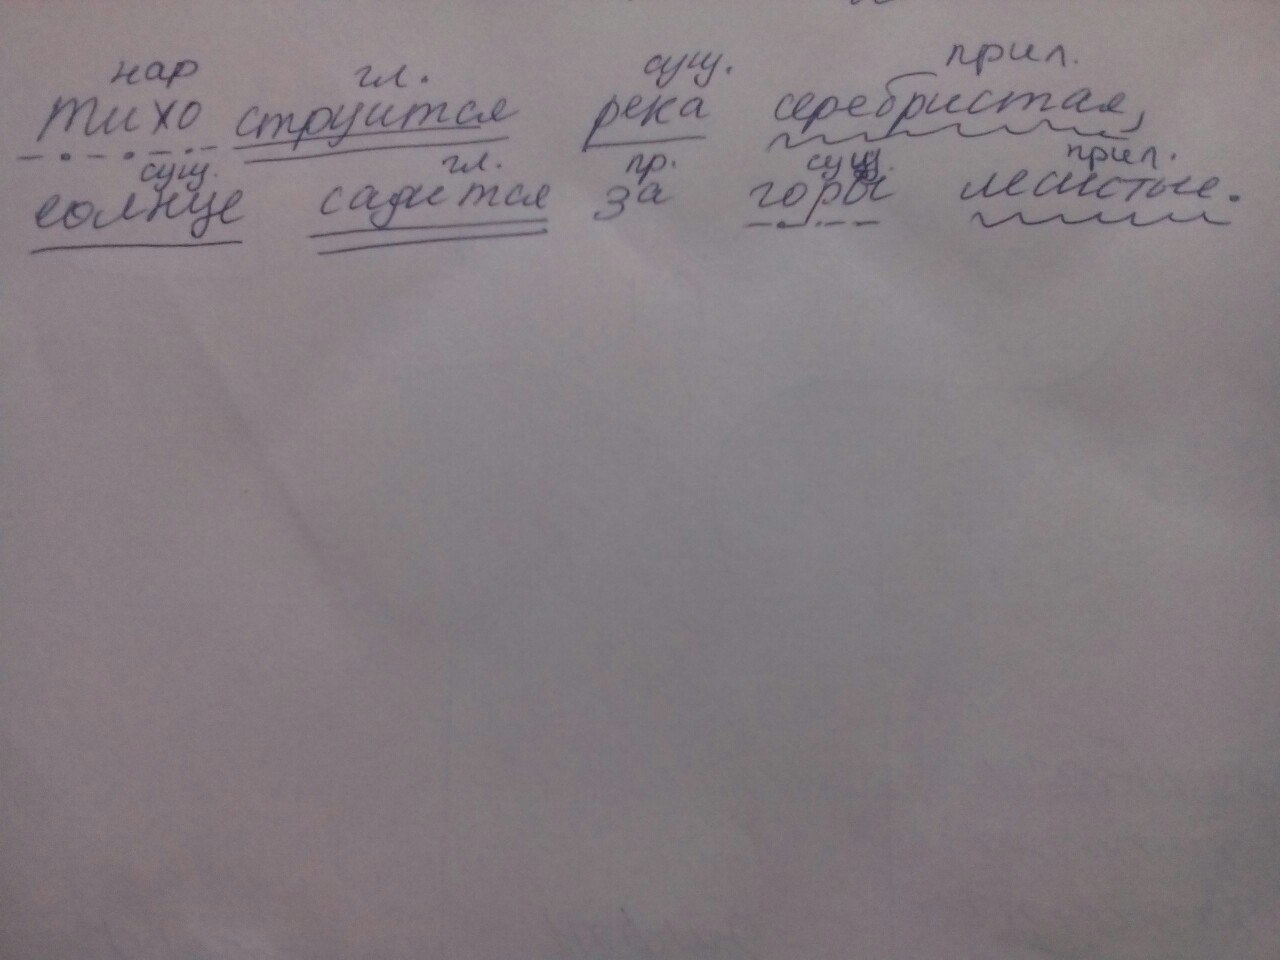 нар гл. сущ. прил.
тихо струится река серебристая,
сущ. гл. пр. сущ. прил.
солнце садится за горы лесистые.